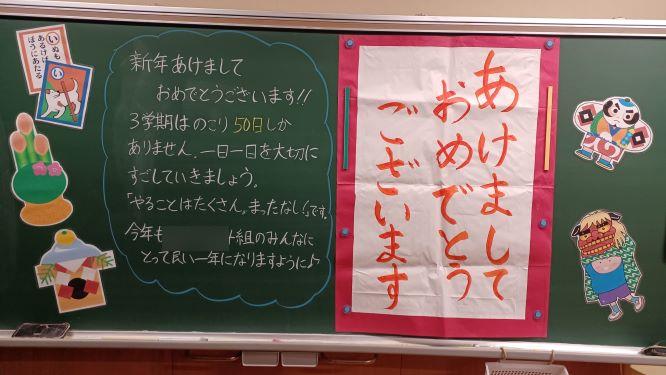 いぬも
あるけば
ぼうにあたる
い
新年あけまして
おめでとうございます!!
3学期はのこり50日しか
ありません。一日一日を大切に
すごしていきましょう。
「やることはたくさん。まったなし!」です。
今年も 組のみんなに
とって良い一年になりますように♪
あけまして
おめでとう
ございます